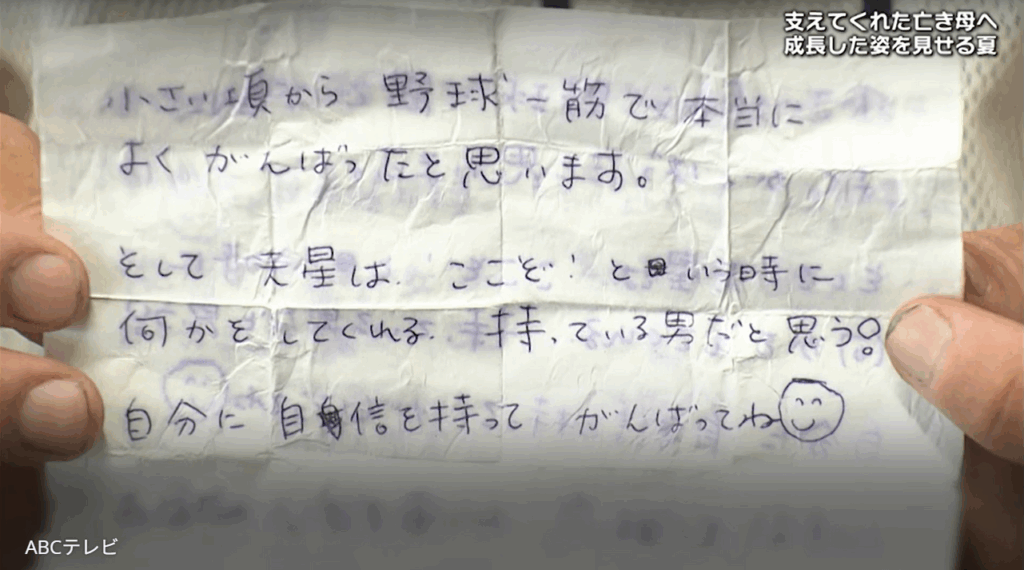 支えてくれた亡き母へ
成長した姿を見せる夏
小さい頃から 野球一筋で 本当に
よく がんばったと思います。
そして 走星は ここぞ!と いう時に
何かをしてくれる. 持っている男だと思う。
自分に 自信を持って がんばってね
ABCテレビ